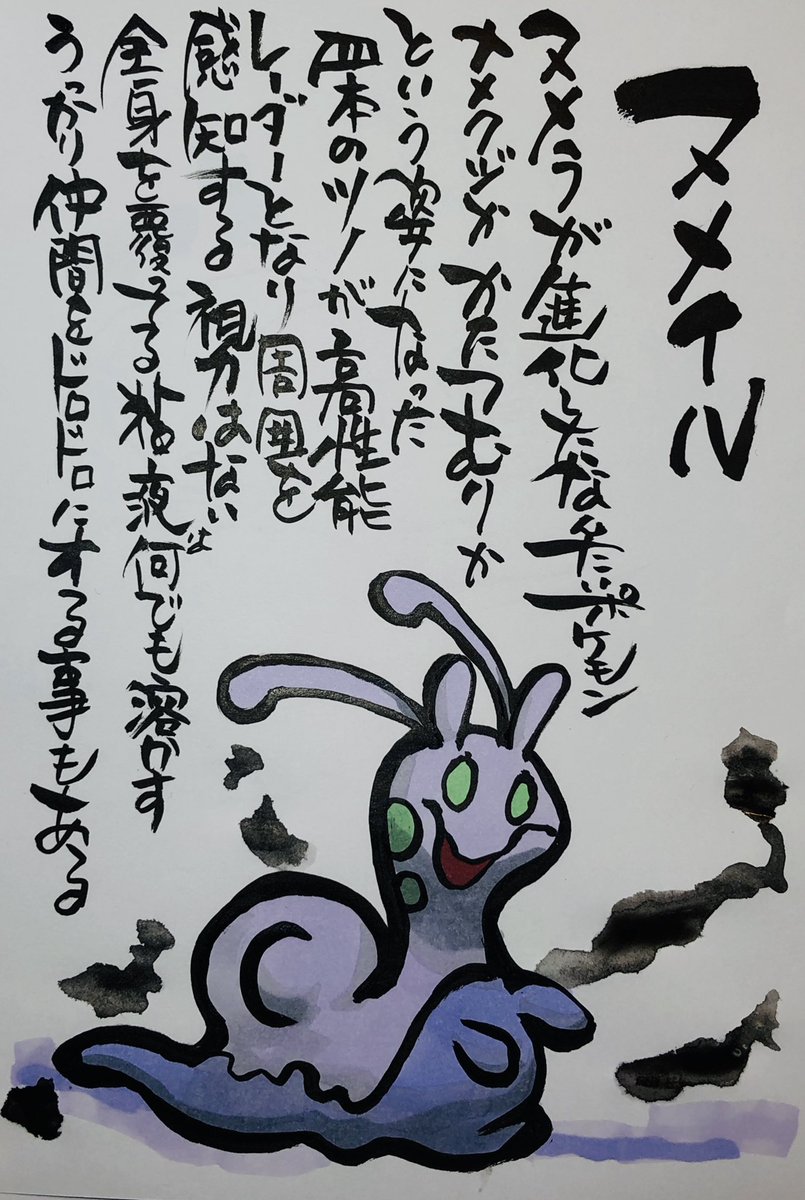 ヌメイル
ヌメラが進化したなんたいポケモン
ナメクジかかたつむりか
という姿になった
四本のツノが高性能
レーダーとなり周囲を
感知する 視力はない
全身を覆ってる粘液は何でも溶かす
うっかり仲間をドロドロにする事もある